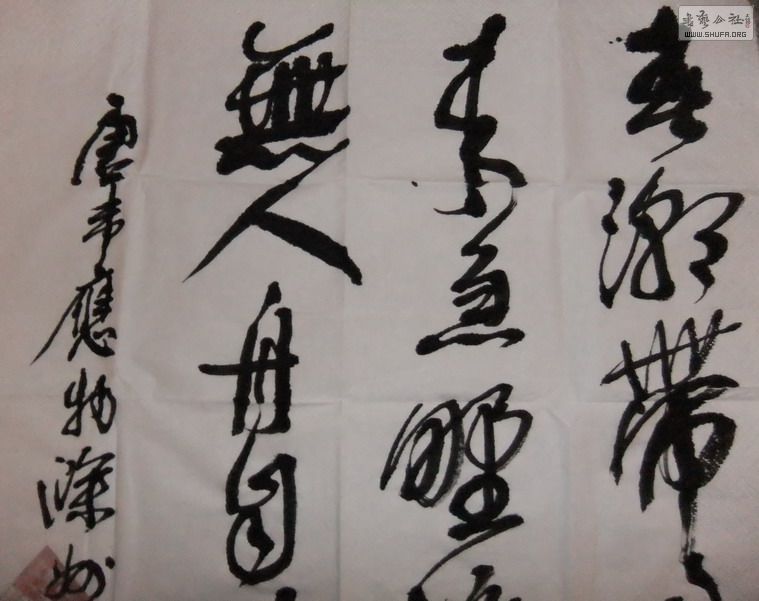 春潮帶
来急野
無人舟自
唐韋應物滁州
書藝公社
WWW.SHUFA.ORG